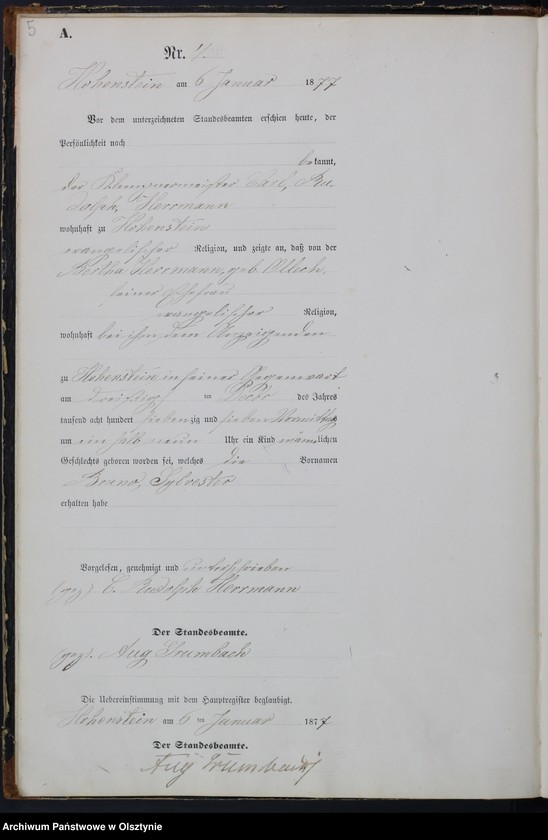 5
A.
Nr. 4.
Hohenstein am 6 Januar 1877
Vor dem unterzeichneten Standesbeamten erschien heute, der
Persönlichkeit nach
bekannt,
der Klempnermeister Carl, Ru-
dolph, Herrmann
wohnhaft zu Hohenstein
evangelischer Religion, und zeigte an, daß von der
Bertha Herrmann, geb. Ollech,
seiner Ehefrau
evangelischer Religion,
wohnhaft bei ihm dem Anzeigenden
zu Hohenstein in seiner Gegenwart
am dreißig ten Decbr des Jahres
tausend acht hundert siebenzig und Vormittags
um ein halb neun Uhr ein Kind männlichen
Geschlechts geboren worden sei, welches die Vornamen
Bruno, Sylvester
erhalten habe
Vorgelesen, genehmigt und unterschrieben
(gez). C. Rudolph Herrmann
Der Standesbeamte.
(gez). Aug Grumbach
Die Uebereinstimmung mit dem Hauptregister beglaubigt.
Hohenstein am 6 ten Januar 1877
Der Standesbeamte.
Aug Grumbach
Archiwum Państwowe w Olsztynie